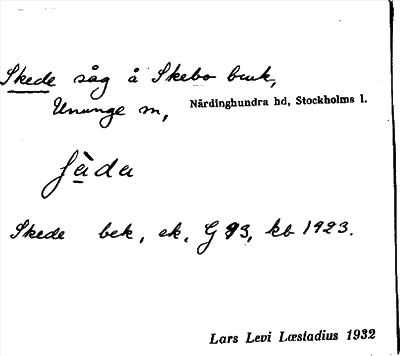 Skede såg å Skebo bruk,
Ununge sn, Närdinghundra hd, Stockholms l.
ʃèda
Skede bek, ek. G 93, kb 1923.
Lars Levi Læstadius 1932